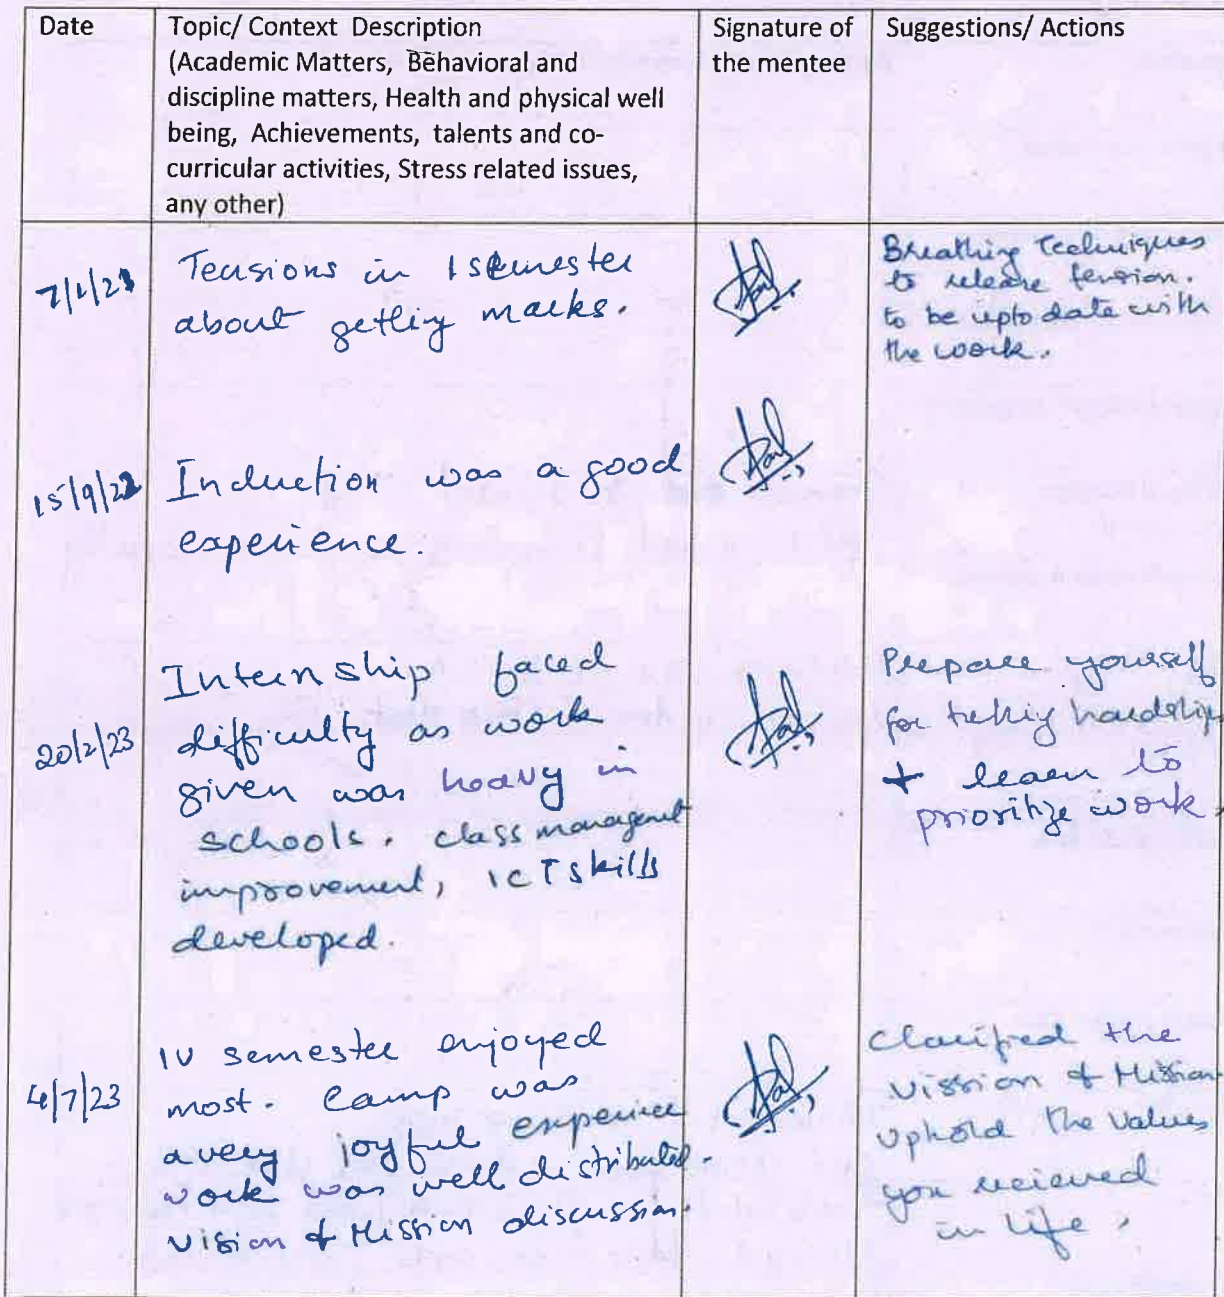 Date
Topic/ Context Description
(Academic Matters, Behavioral and
discipline matters, Health and physical well
being, Achievements, talents and co-
curricular activities, Stress related issues,
any other)
Signature of
the mentee
Suggestions/ Actions
Tensions in 1 semester
about getting marks.
Breathing Techniques
to release tension.
to be upto date with
the work.
15/9/22
Induction was a good
experience.
20/2/23
Internship faced
difficulty as work
given was heavy in
schools. class managemt
improvement, ICT skills
developed.
Prepare yourself
for taking hardship
+ learn to
prioritize work
4/7/23
IV semester enjoyed
most. Camp was
a very joyful experience
work was well distributed.
Vision & Mission discussion.
Clarified the
Vission & Mission
Uphold the values
you recieved
in life